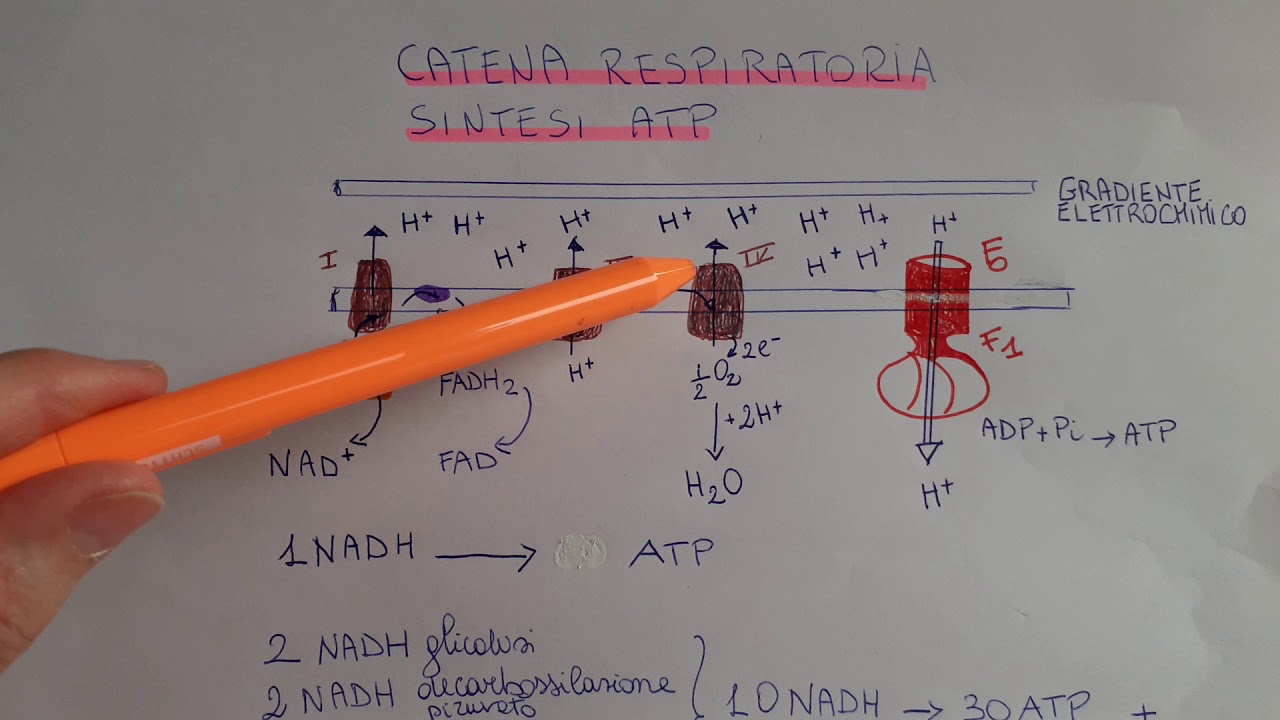 CATENA RESPIRATORIA
SINTESI ATP
GRADIENTE
ELETTROCHIMICO
H+ H+ H+ H+ H+ H+ H+ H+
H+ H+ H+
I IV
F1
H+
2e-
1/2 O2
+2H+
H2O
FADH2
NAD+ FAD
ADP+Pi → ATP
H+
1 NADH → ATP
2 NADH glicolisi
2 NADH decarbossilazione
piruvato
10 NADH → 30 ATP +